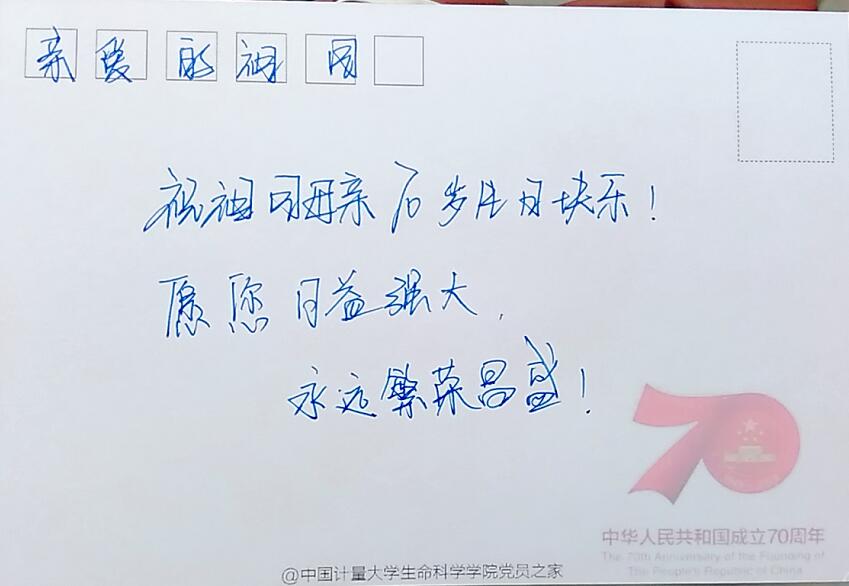 亲爱的祖国
祝祖国母亲70岁生日快乐！
愿您日益强大，
永远繁荣昌盛！
中华人民共和国成立70周年
The 70th Anniversary of the Founding of
The People's Republic of China
@中国计量大学生命科学学院党员之家